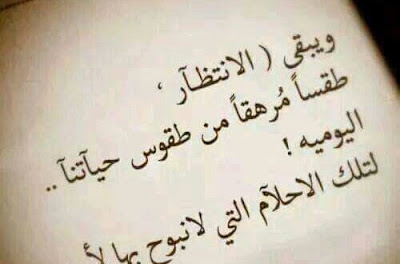 ويبقى ( الانتظآر ،
طقساً مُرهقاً من طقوس حيآتنآ ..
اليوميه !
لتلك الاحلآم التي لانبوح بها